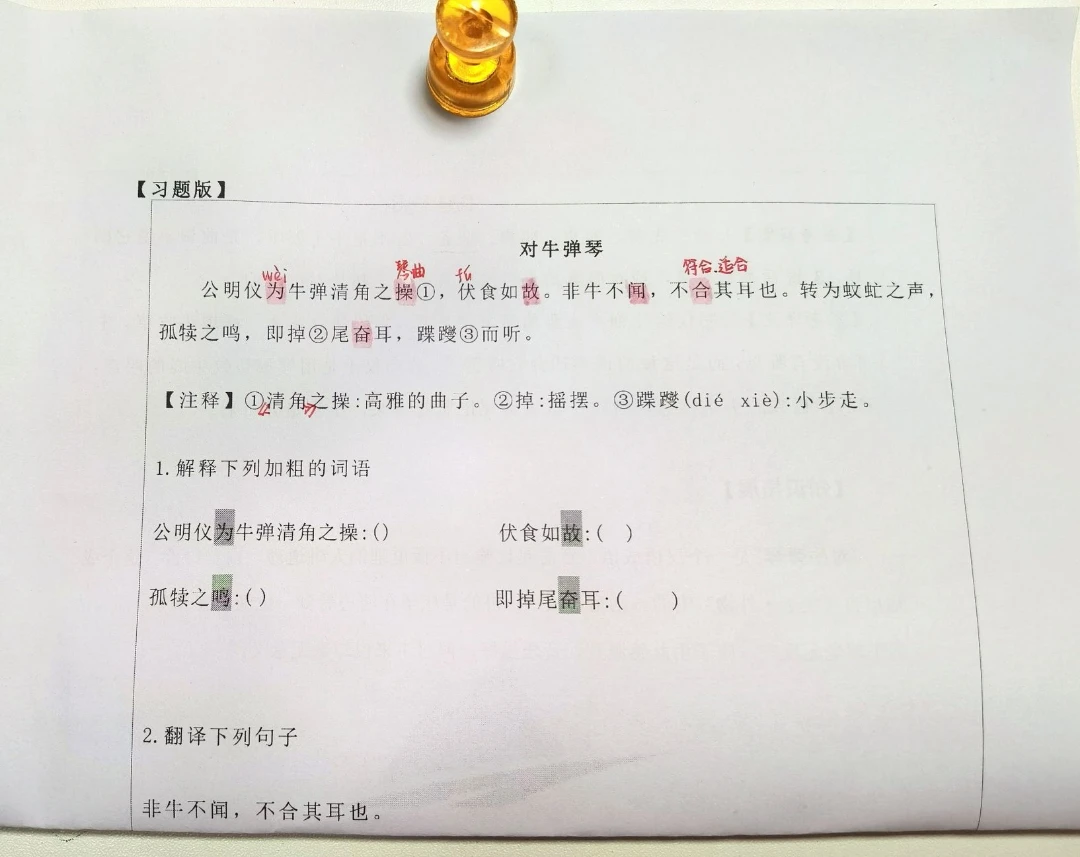 【习题版】
对牛弹琴
wèi 琴曲 fú 符合.适合
公明仪为牛弹清角之操①，伏食如故。非牛不闻，不合其耳也。转为蚊虻之声，
孤犊之鸣，即掉②尾奋耳，蹀躞③而听。
【注释】①清角之操:高雅的曲子。②掉:摇摆。③蹀躞(dié xiè):小步走。
1.解释下列加粗的词语
公明仪为牛弹清角之操:() 伏食如故:( )
孤犊之鸣:() 即掉尾奋耳:( )
2.翻译下列句子
非牛不闻，不合其耳也。